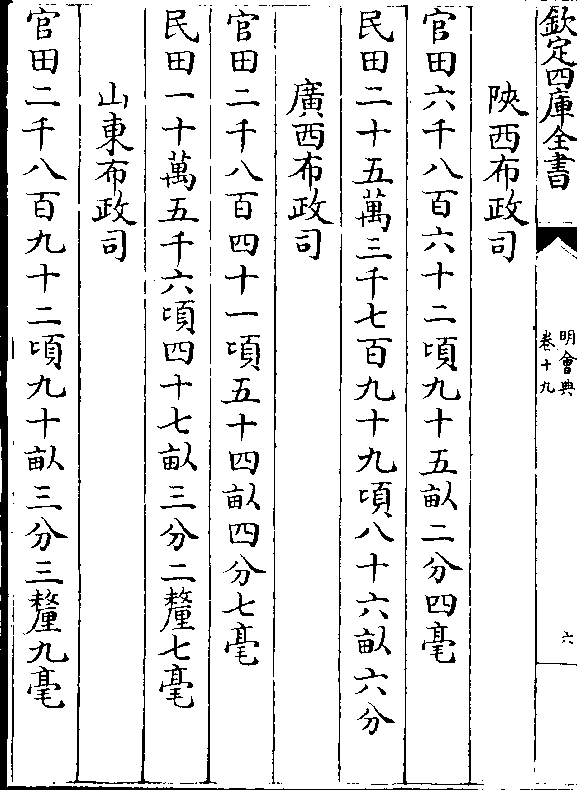 欽定四庫全書
明會典
卷十九
六
陜西布政司
官田六千八百六十二頃九十五畝二分四毫
民田二十五萬三千七百九十九頃八十六畝六分
廣西布政司
官田二千八百四十一頃五十四畝四分七毫
民田一十萬五千六頃四十七畝三分二釐七毫
山東布政司
官田二千八百九十二頃九十畝三分三釐九毫